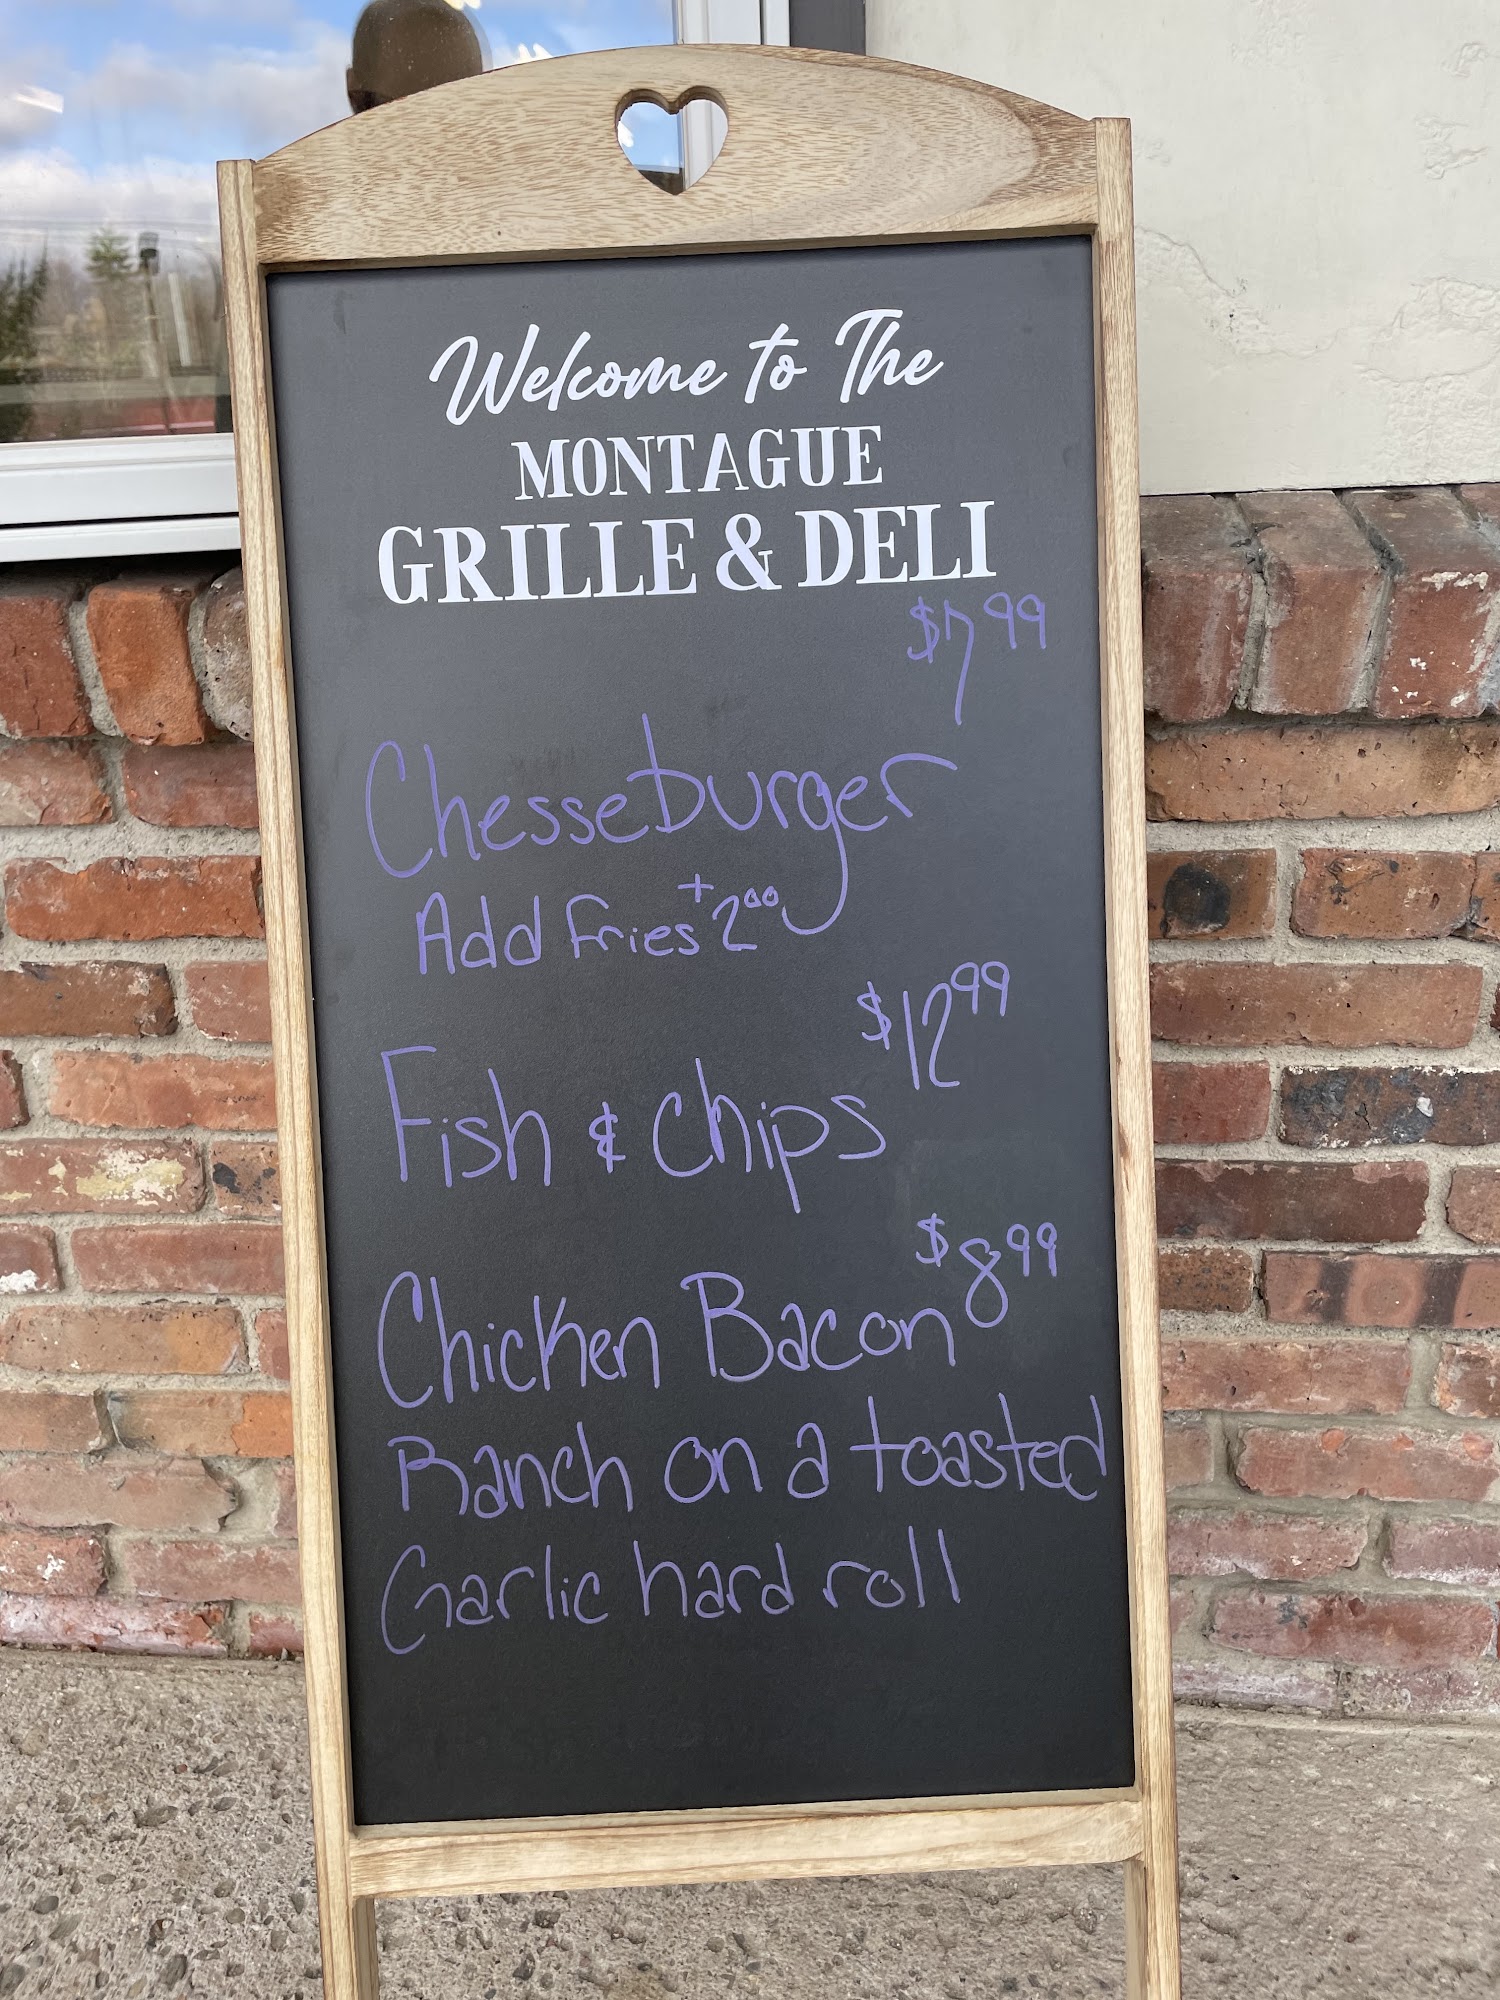 Welcome to The
MONTAGUE
GRILLE & DELI
$7.99
Chesseburger
Add Fries +2.00
$12.99
Fish & Chips
$8.99
Chicken Bacon
Ranch on a toasted
Garlic hard roll